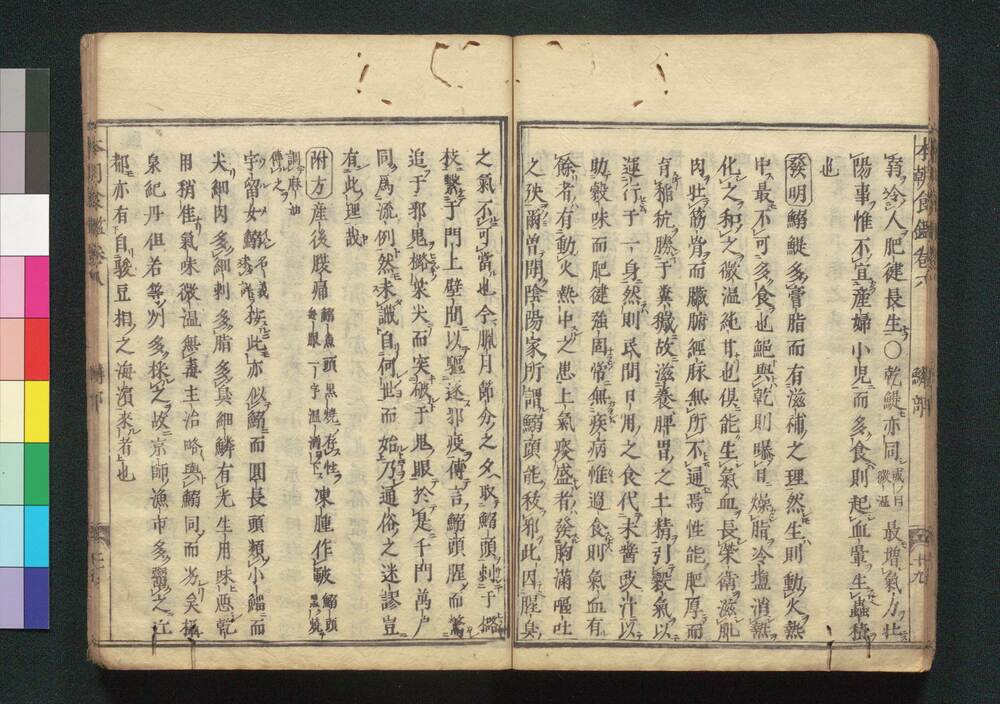 本朝食鑑卷八　鱗部　十九
胃冷人肥健長生○乾鯷亦同或曰微溫最增氣力壯
陽事惟不宜產婦小兒而多食則起血暈生蟲積
也
發明鰯鯷多膏脂而有滋補之理然生則動火熱
中最不可多食也鮑與乾則曝日燥脂冷塩消熱
化之和之微温純甘也俱能生氣血長榮衛滋肌
肉壯筋骨而臟腑經脉無所不通焉性能肥厚而
育稲秔勝于糞穢故滋養脾胃之土精引穀氣以
運行于一身然則民間日用之食代末醬或汁以
助穀味而肥健強固常無疾病惟過食則氣血有
餘者有動火熱中之患上氣痰盛者發胸滿嘔吐
之殃爾曽聞陰陽家所謂鰯頭能祓邪此因腥臭
之氣不可當也今臘月節分之夕取鰯頭刺于柊
枝繫于門上壁間以驅逐邪疫傳言鰯頭腥而驚
追于邪鬼柊葉尖而突破于鬼眼於是千門萬戸
同爲流例然未識自何世而始乃通俗之迷謬豈
有此理哉
附方產後腹痛鰯魚頭黒燒存性每服一字温酒下凍腫作皸鰯頭黒燒
調麻油傳之
宇留女鰯名義未詳按此亦似鰯而圓長頭類小鯔而
尖細肉多細刺多脂多眞細鱗有光生用味悪乾
用稍佳氣味微温無毒主治略與鰯同而劣矣極
泉紀丹但若等州多採之故京師漁市多鬻之江
都亦有自駿豆相之海濱來者也
本朝食鑑卷八　鱗部